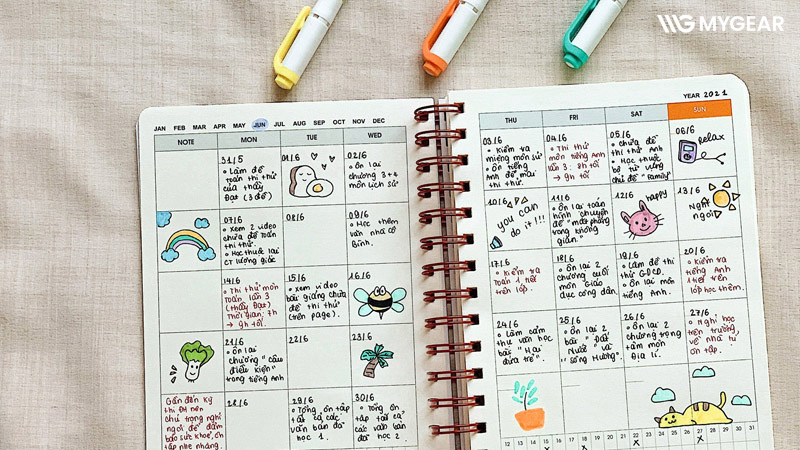 MYGEAR
YEAR 2021
JAN FEB MAR APR MAY JUN JUL AUG SEP OCT NOV DEC
NOTE MON TUE WED
31/5
• Làm đề
toán thi thử
của thầy
Đạt (3 đề)
01/6
02/6
• Ôn lại
chương 3+4
môn lịch sử
07/6
• Xem 2 video
chữa đề toán
thi thử.
• Học thuộc lại
CT lượng giác
08/6
09/6
• Học thêm
văn nhà cô
Bình.
14/6
• Thi thử môn
toán lần 3
(thầy Đạt)
Thời gian: 7h
→ 9h tối.
15/6
• Xem video
bài giảng chữa
đề thi thử
(trên page).
16/6
21/6
• Ôn lại
chương "câu
điều kiện"
trong tiếng Anh
22/6
23/6
Gần đến kỳ
thi ĐH nên
chú trọng nghỉ
ngơi để đảm
bảo sức khoẻ, ôn
tập nhẹ nhàng.
28/6
29/6
• Tổng ôn tập
tất cả các
văn bản đã
học 1.
30/6
• Tổng ôn
tập tất cả
các văn bản
đã học 2.
THU FRI SAT SUN
03/6
• Kiểm tra
miệng môn sử
• Ôn tiếng
Anh để mai
thi thử.
04/6
• Thi thử
môn tiếng Anh
lần 3: 8h tối
→ 9h tối
05/6
• Chữa đề
thi thử Anh
• Học thuộc
bộ từ vựng
chủ đề "family"
06/6
relax
10/6
you can
do it!!!
11/6
• Ôn lại toán
hình chuyên
đề "mặt phẳng
trong không
gian"
12/6
happy
13/6
Ngày
nghỉ
17/6
• Kiểm tra
toán 1 tiết
trên lớp.
18/6
• Ôn lại 2
chương cuối
môn Giáo
dục công dân.
19/6
• Làm đề thi
thử GDCD.
• Ôn lại môn
tiếng Anh.
20/6
• Kiểm tra
tiếng Anh
1 tiết trên
lớp học thêm.
24/6
• Làm cảm
thụ văn học
bài "Hai
đứa trẻ".
25/6
• Ôn lại 2
bài "Đất
Nước" và
"Sông Hương".
26/6
• Ôn lại 2
chương trọng
tâm môn
Địa lí.
27/6
• Nghỉ học
trên trường,
về nhà tự
ôn tập.
12 13 14 15 16 17 18 19 20 21 22 23 24 25 26 27 28 29 30 31